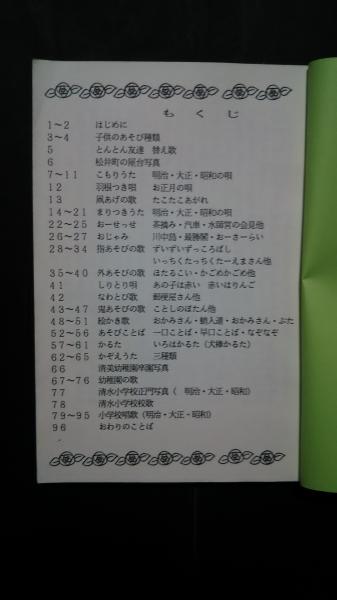 もくじ
1～2 はじめに
3～4 子供のあそび種類
5 とんとん友達 替え歌
6 松井町の屋台写真
7～11 こもりうた 明治・大正・昭和の唄
12 羽根つき唄 お正月の唄
13 凧あげの歌 たこたこあがれ
14～21 まりつきうた 明治・大正・昭和の唄
22～25 おーせっせ 茶摘み・汽車・水師営の会見他
26～27 おじゃみ 川中島・最勝閣・おーさーらい
28～34 指あそびの歌 ずいずいずっころばし
いっちくたっちくたーえまさん他
35～40 外あそびの歌 ほたるこい・かごめかごめ他
41 しりとり唄 あの子は赤い 赤いはりんご
42 なわとび歌 郵便屋さん他
43～47 鬼あそびの歌 ことしのぼたん他
48～51 絵かき歌 おかみさん・蛸入道・おかみさん・ぶた
52～56 あそびことば 一口ことば・早口ことば・なぞなぞ
57～61 かるた いろはかるた（犬棒かるた）
62～65 かぞえうた 三種類
66 清美幼稚園卒園写真
67～76 幼稚園の歌
77 清水小学校正門写真（ 明治・大正・昭和）
78 清水小学校校歌
79～95 小学校唱歌（明治・大正・昭和）
96 おわりのことば